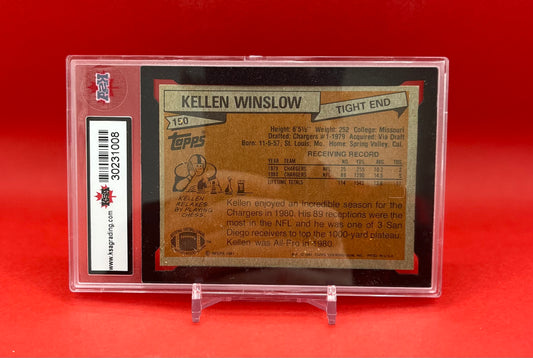 KELLEN WINSLOW
TIGHT END
150
TOPPS
Height: 6'5½ Weight: 252 College: Missouri
Drafted: Chargers #1-1979 Acquired: Via Draft
Born: 11-5-57, St. Louis, Mo. Home: Spring Valley, Cal.
RECEIVING RECORD
YEAR TEAM NO. YDS. AVG. TDS.
1979 CHARGERS 25 255 10.2 2
1980 CHARGERS 89 1290 14.5 9
LIFETIME TOTALS 114 1545 13.6
KELLEN
RELAXES
BY PLAYING
CHESS.
Kellen enjoyed an incredible season for the
Chargers in 1980. His 89 receptions were
the most in the NFL and he was one of 3 San
Diego receivers to top the 1000-yard plateau.
Kellen was All-Pro in 1980.
KSA
www.ksagrading.com
30231008
KSA